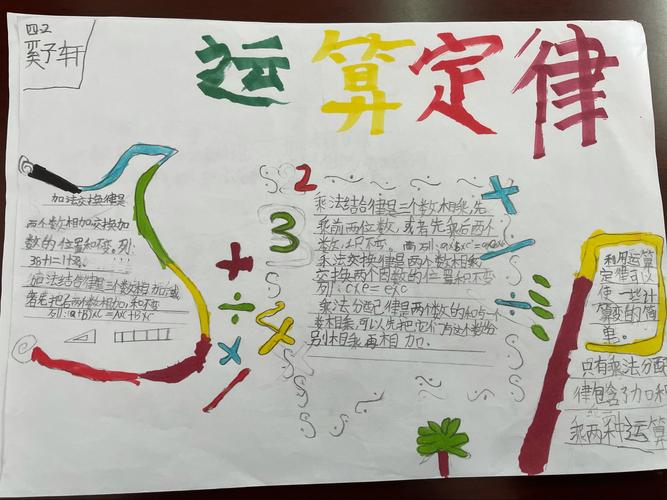 四.2
奚子轩
运算定律
加法交换律是
两个数相加交换加
数的位置和不变。列:
38+1=1+38。
加法结合律是三个数相加或
者先把后两个数相加,和不变
列:(a+B)×C=A×C+B×C
2
3
乘法结合律是三个数相乘,先
乘前两位数,或者先乘后两个
数,积不变。
乘法交换律是两个数相乘
交换两个因数的位置积不变
列:c×e=e×c
乘法分配律是两个数的和与一个
数相乘,可以先把它们与这个数分
别相乘再相加.
利用运算
定律可以
使一些计
算变的简
单。
只有乘法分配
律包含了加和
乘两种运算